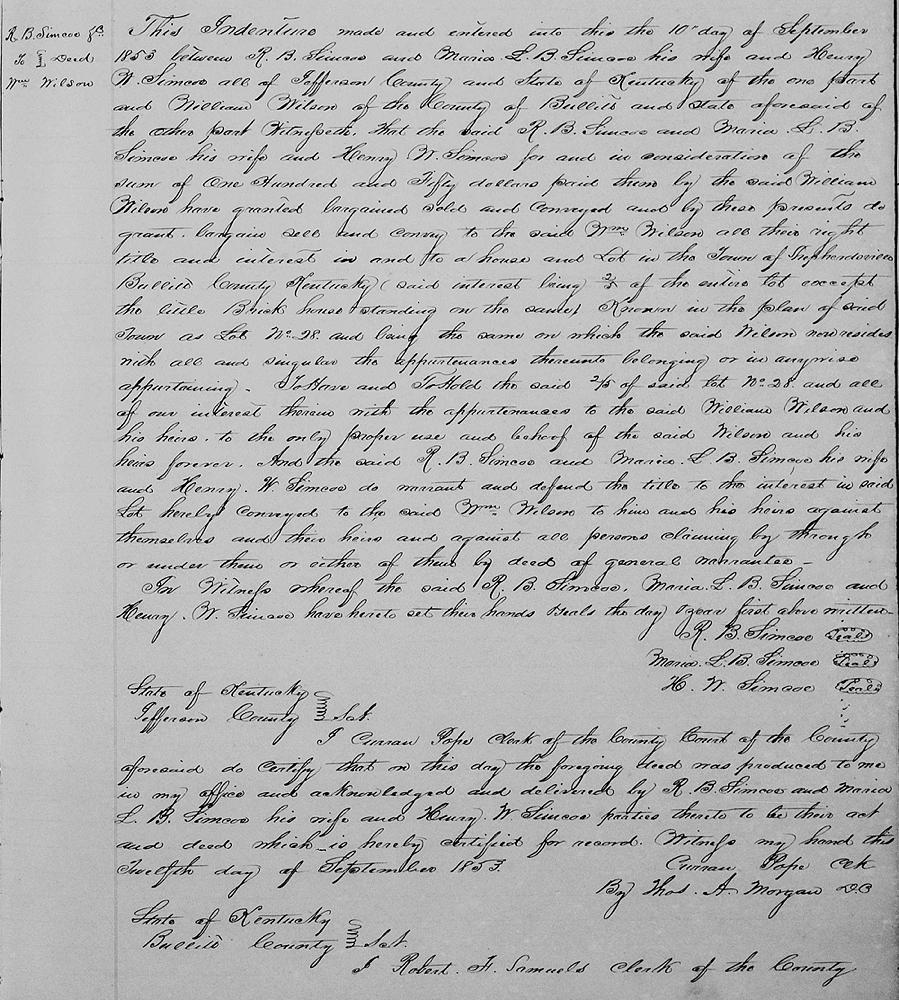 R. B. Simcoe &c.
To } Deed
Wm Wilson
This Indenture made and entered into this the 10th day of September
1853 between R. B. Simcoe and Maria L. B. Simcoe his wife and Henry
W. Simcoe all of Jefferson County and State of Kentucky of the one part
and William Wilson of the County of Bullitt and state aforesaid of
the other part Witnesseth, that the said R. B. Simcoe and Maria. L. B.
Simcoe his wife and Henry W. Simcoe for and in consideration of the
sum of One Hundred and Fifty dollars paid them by the said William
Wilson have granted bargained sold and conveyed and by these presents do
grant. bargain sell and convey to the said Wm Wilson all their right
title and interest in and to a house and Lot in the Town of Shepherdsville
Bullitt County Kentucky (said interest being 2/5 of the entire lot except
the little Brick house standing on the same) Known in the plan of said
Town as Lot No. 28. and being the same on which the said Wilson now resides
with all and singular the appurtenances thereunto belonging or in anywise
appurtaining. To Have and To Hold the said 2/5 of said lot No. 28. and all
of our interest therein with the appurtenances to the said William Wilson and
his heirs. to the only proper use and behoof of the said Wilson and his
heirs forever. And the said R. B. Simcoe and Maria. L. B. Simcoe his wife
and Henry. W. Simcoe do warrant and defend the title to the interest in said
Lot hereby conveyed to the said Wm Wilson to him and his heirs against
themselves and their heirs and against all persons claiming by through
or under them or either of them by deed of general warrantee—
In Witness whereof the said R. B. Simcoe. Maria. L. B Simcoe and
Henry. W. Simcoe have hereto set their hands & seals the day & year first above written—
R. B. Simcoe (Seal)
Maria. L. B. Simcoe (Seal)
H. W. Simcoe (Seal)
State of Kentucky
Jefferson County } Sct.
I Curran Pope Clerk of the County Court of the County
aforesaid do certify that on this day the foregoing deed was produced to me
in my office and acknowledged and delivered by R. B. Simcoe and Maria
L. B. Simcoe his wife and Henry. W. Simcoe parties thereto to be their act
and deed which is hereby certified for record. Witness my hand this
Twelfth day of September 1853.
Curran Pope Clk
By Thos. A. Morgan DC
State of Kentucky
Bullitt County } Sct.
I Robert. F. Samuels Clerk of the County